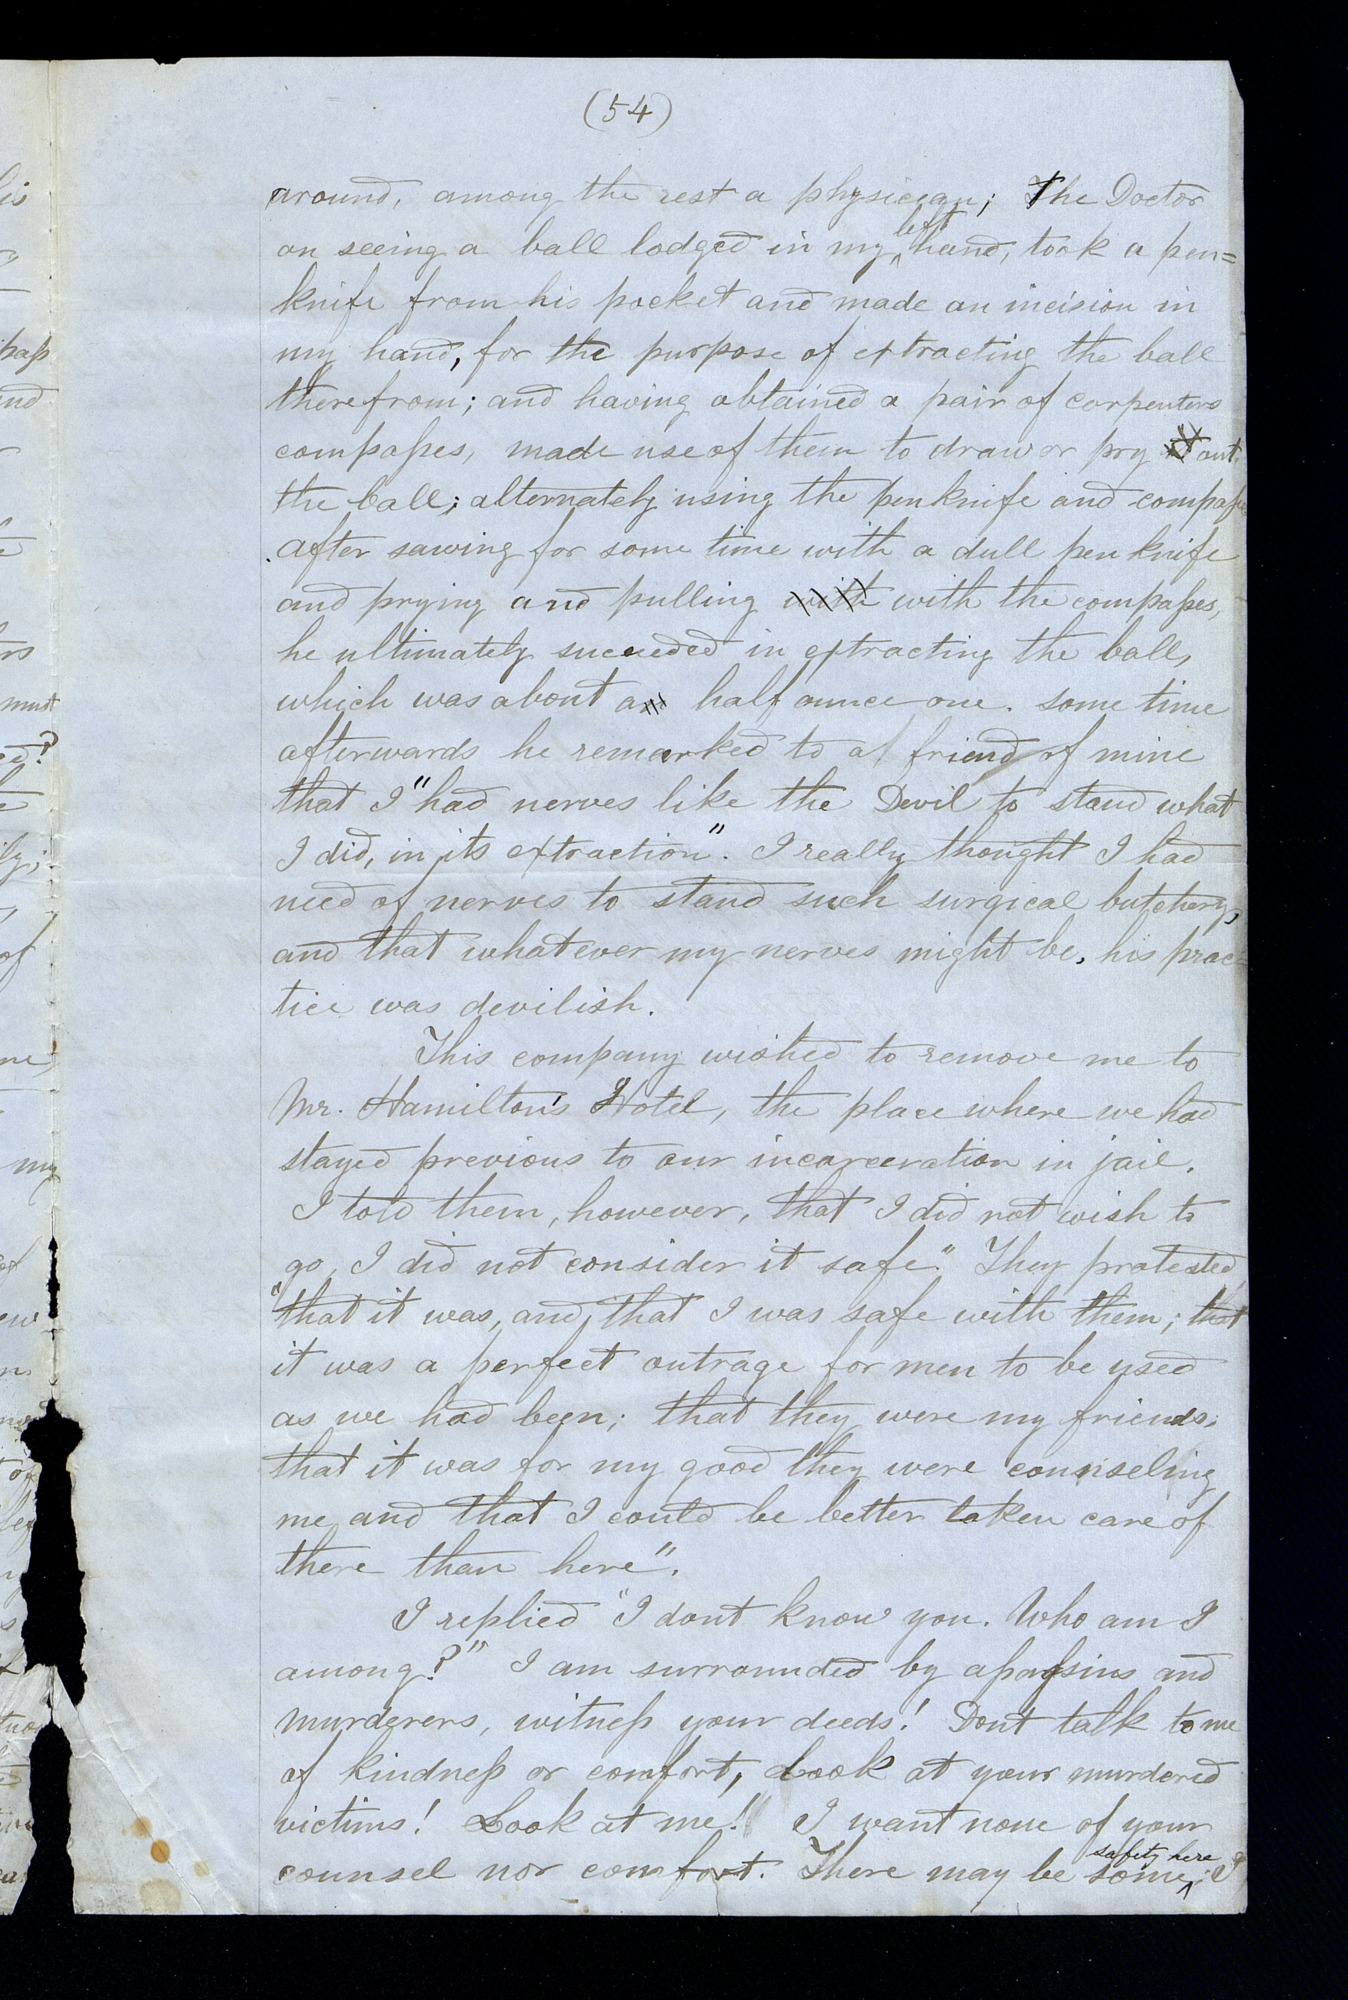 (54)
around, among the rest a physician; The Doctor
on seeing a ball lodged in my left hand, took a pen=
knife from his pocket and made an incision in
my hand, for the purpose of extracting the ball
therefrom; and having obtained a pair of carpenters
compasses, made use of them to draw or pry it out
the ball; alternately using the penknife and compasses
After sawing for some time with a dull pen knife
and prying and pulling with with the compasses,
he ultimately succeeded in extracting the ball,
which was about an half ounce one. some time
afterwards he remarked to a friend of mine
that I "had nerves like the Devil to stand what
I did, in its extraction". I really thought I had
need of nerves to stand such surgical butchery,
and that whatever my nerves might be, his prac=
tice was devilish.
This company wished to remove me to
Mr. Hamilton's Hotel, the place where we had
stayed previous to our incarceration in jail.
I told them, however, that I did not wish to
go, I did not consider it safe." They protested
"that it was, and that I was safe with them; that
it was a perfect outrage for men to be used
as we had been; that they were my friends;
that it was for my good they were counseling
me, and that I could be better taken care of
there than here".
I replied "I dont know you. Who am I
among?" I am surrounded by assassins and
murderers, witness your deeds! Dont talk to me
of kindness or comfort, Look at your murdered
victims! Look at me! I want none of your
counsel nor comfort. There may be some safety here; I